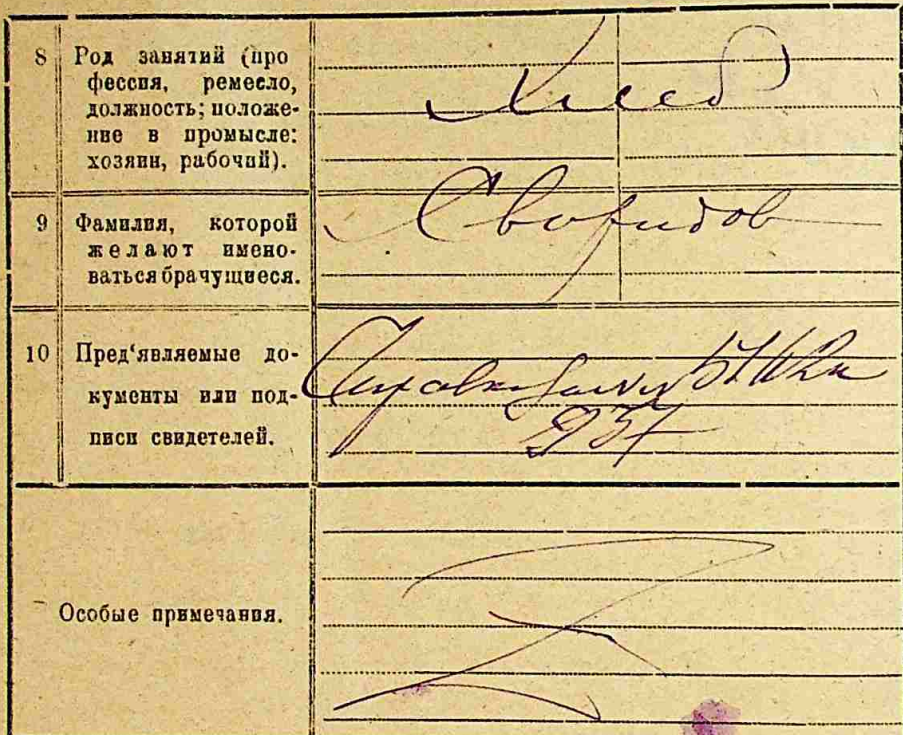 8 Род занятий (про
фессия, ремесло,
должность; положе-
ние в промысле:
хозяин, рабочий).
Хлеб
9 Фамилия, которой
желают имено-
ваться брачущиеся.
Своридов
10 Пред‘являемые до-
кументы или под-
писи свидетелей.
937
Особые примечания.